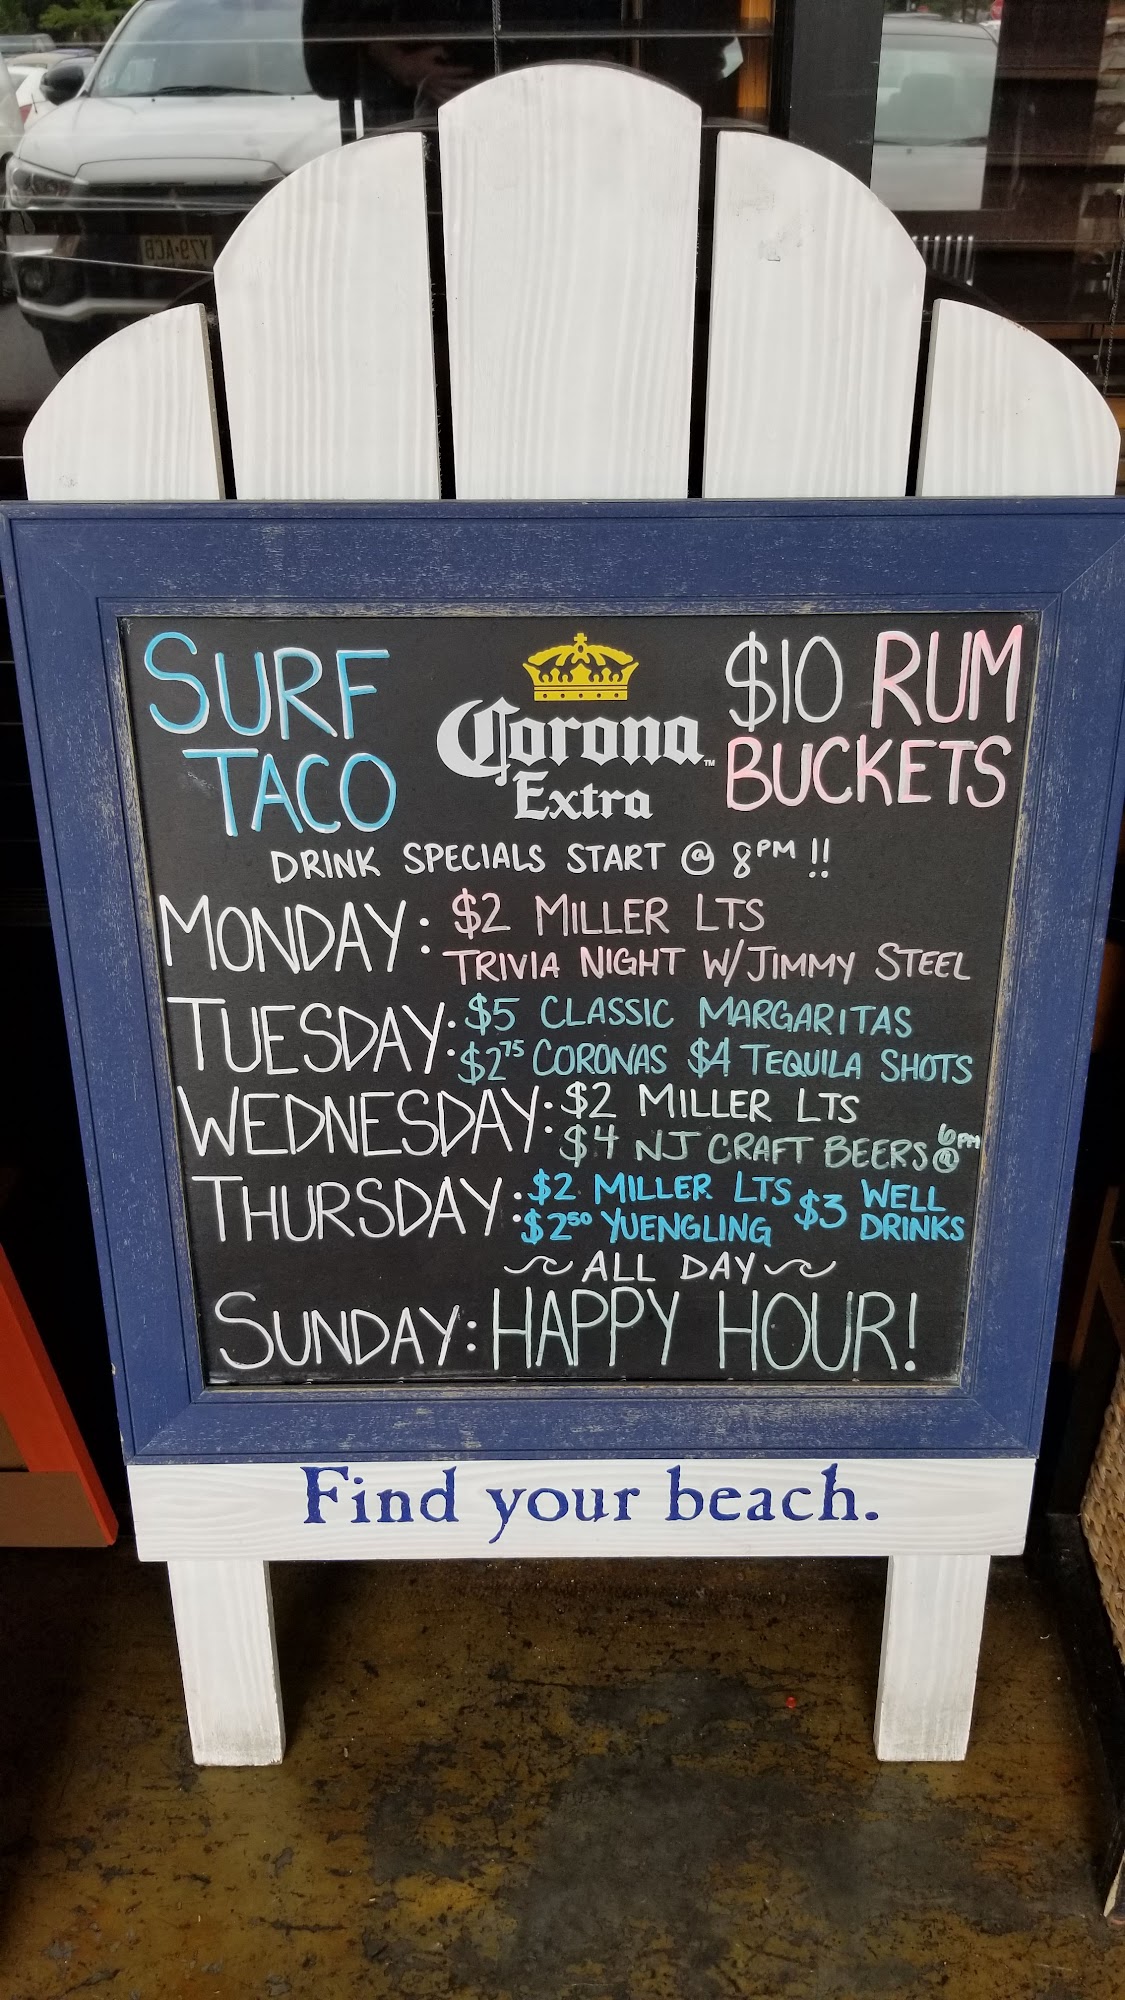 SURF
TACO
Corona™
Extra
$10 RUM
BUCKETS
DRINK SPECIALS START @ 8PM !!
MONDAY: $2 MILLER LTS
TRIVIA NIGHT W/JIMMY STEEL
TUESDAY: $5 CLASSIC MARGARITAS
$2.75 CORONAS $4 TEQUILA SHOTS
WEDNESDAY: $2 MILLER LTS
$4 NJ CRAFT BEERS @ 6PM
THURSDAY: $2 MILLER LTS $3 WELL DRINKS
$2.50 YUENGLING
~ ALL DAY ~
SUNDAY: HAPPY HOUR!
Find your beach.